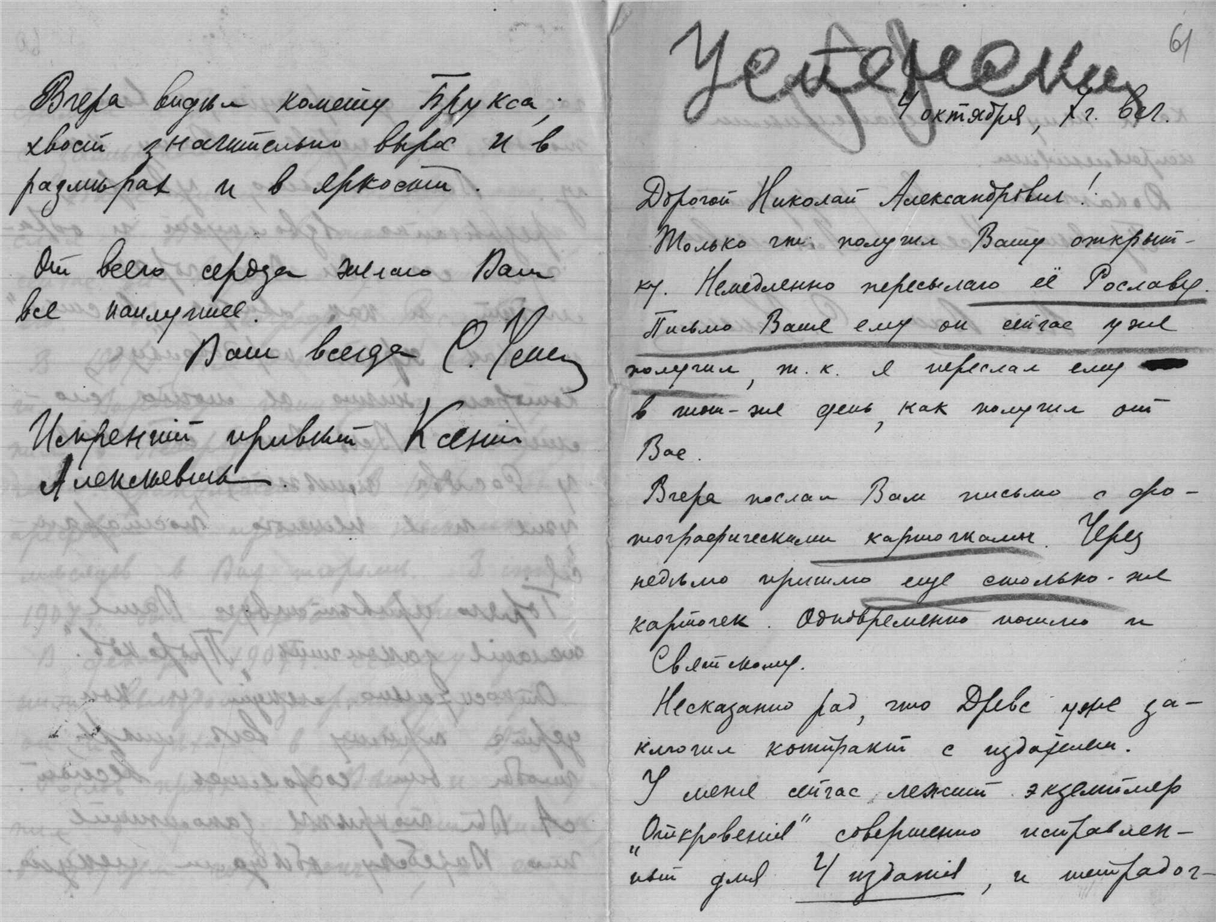 Вчера видѣл комету Брукса,
хвост значительно вырос и в
размѣрах и в яркости.
От всего сердца желаю Вам
все наилучшее.
Ваш всегда С. Успен
Искренній привѣт Ксеніи
Алексѣевнѣ.
61
Успенский
4 октября, 7 ч. веч.
Дорогой Николай Александрович!
Только что получил Вашу открыт-
ку. Немедленно пересылаю её Рославу.
Письмо Ваше ему он сейчас уже
получил, т. к. я переслал ему
в тот-же день, как получил от
Вас.
Вчера послал Вам письмо с фо-
тографическими карточками. Через
недѣлю пришлю еще столько-же
карточек. Одновременно пошлю и
Святскому.
Несказанно рад, что Древс уже за-
ключил контракт с издателем.
У меня сейчас лежит экземпляр
„Откровенія" совершенно исправлен-
ный для 4 изданія, и тетрадоч-